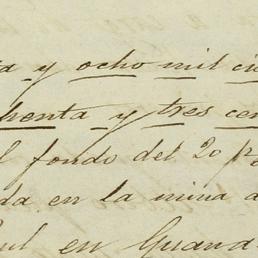 ta y ocho mil ci
henta y tres cen
l fondo del 20 p%
da en la mina d
ul en Guana